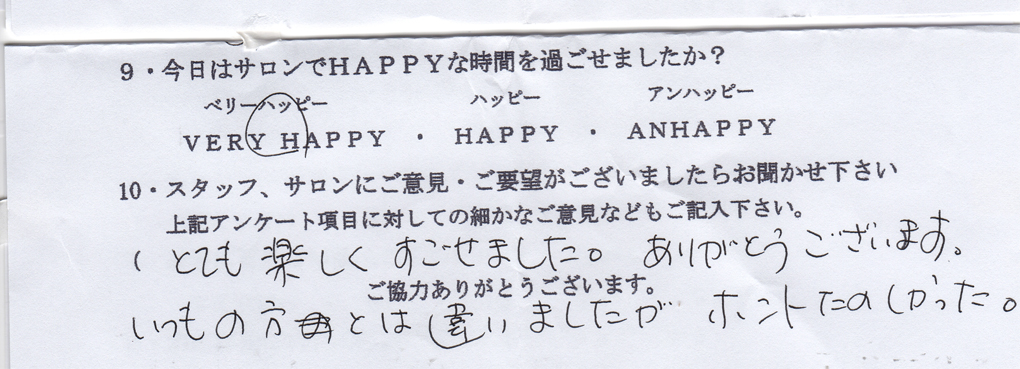 9・今日はサロンでHAPPYな時間を過ごせましたか？
ベリーハッピー ハッピー アンハッピー
VERY HAPPY ・ HAPPY ・ ANHAPPY
10・スタッフ、サロンにご意見・ご要望がございましたらお聞かせ下さい
上記アンケート項目に対しての細かなご意見などもご記入下さい。
（とても楽しくすごせました。ありがとうございます。
ご協力ありがとうございます。
いつもの方とは違いましたがホントたのしかった。